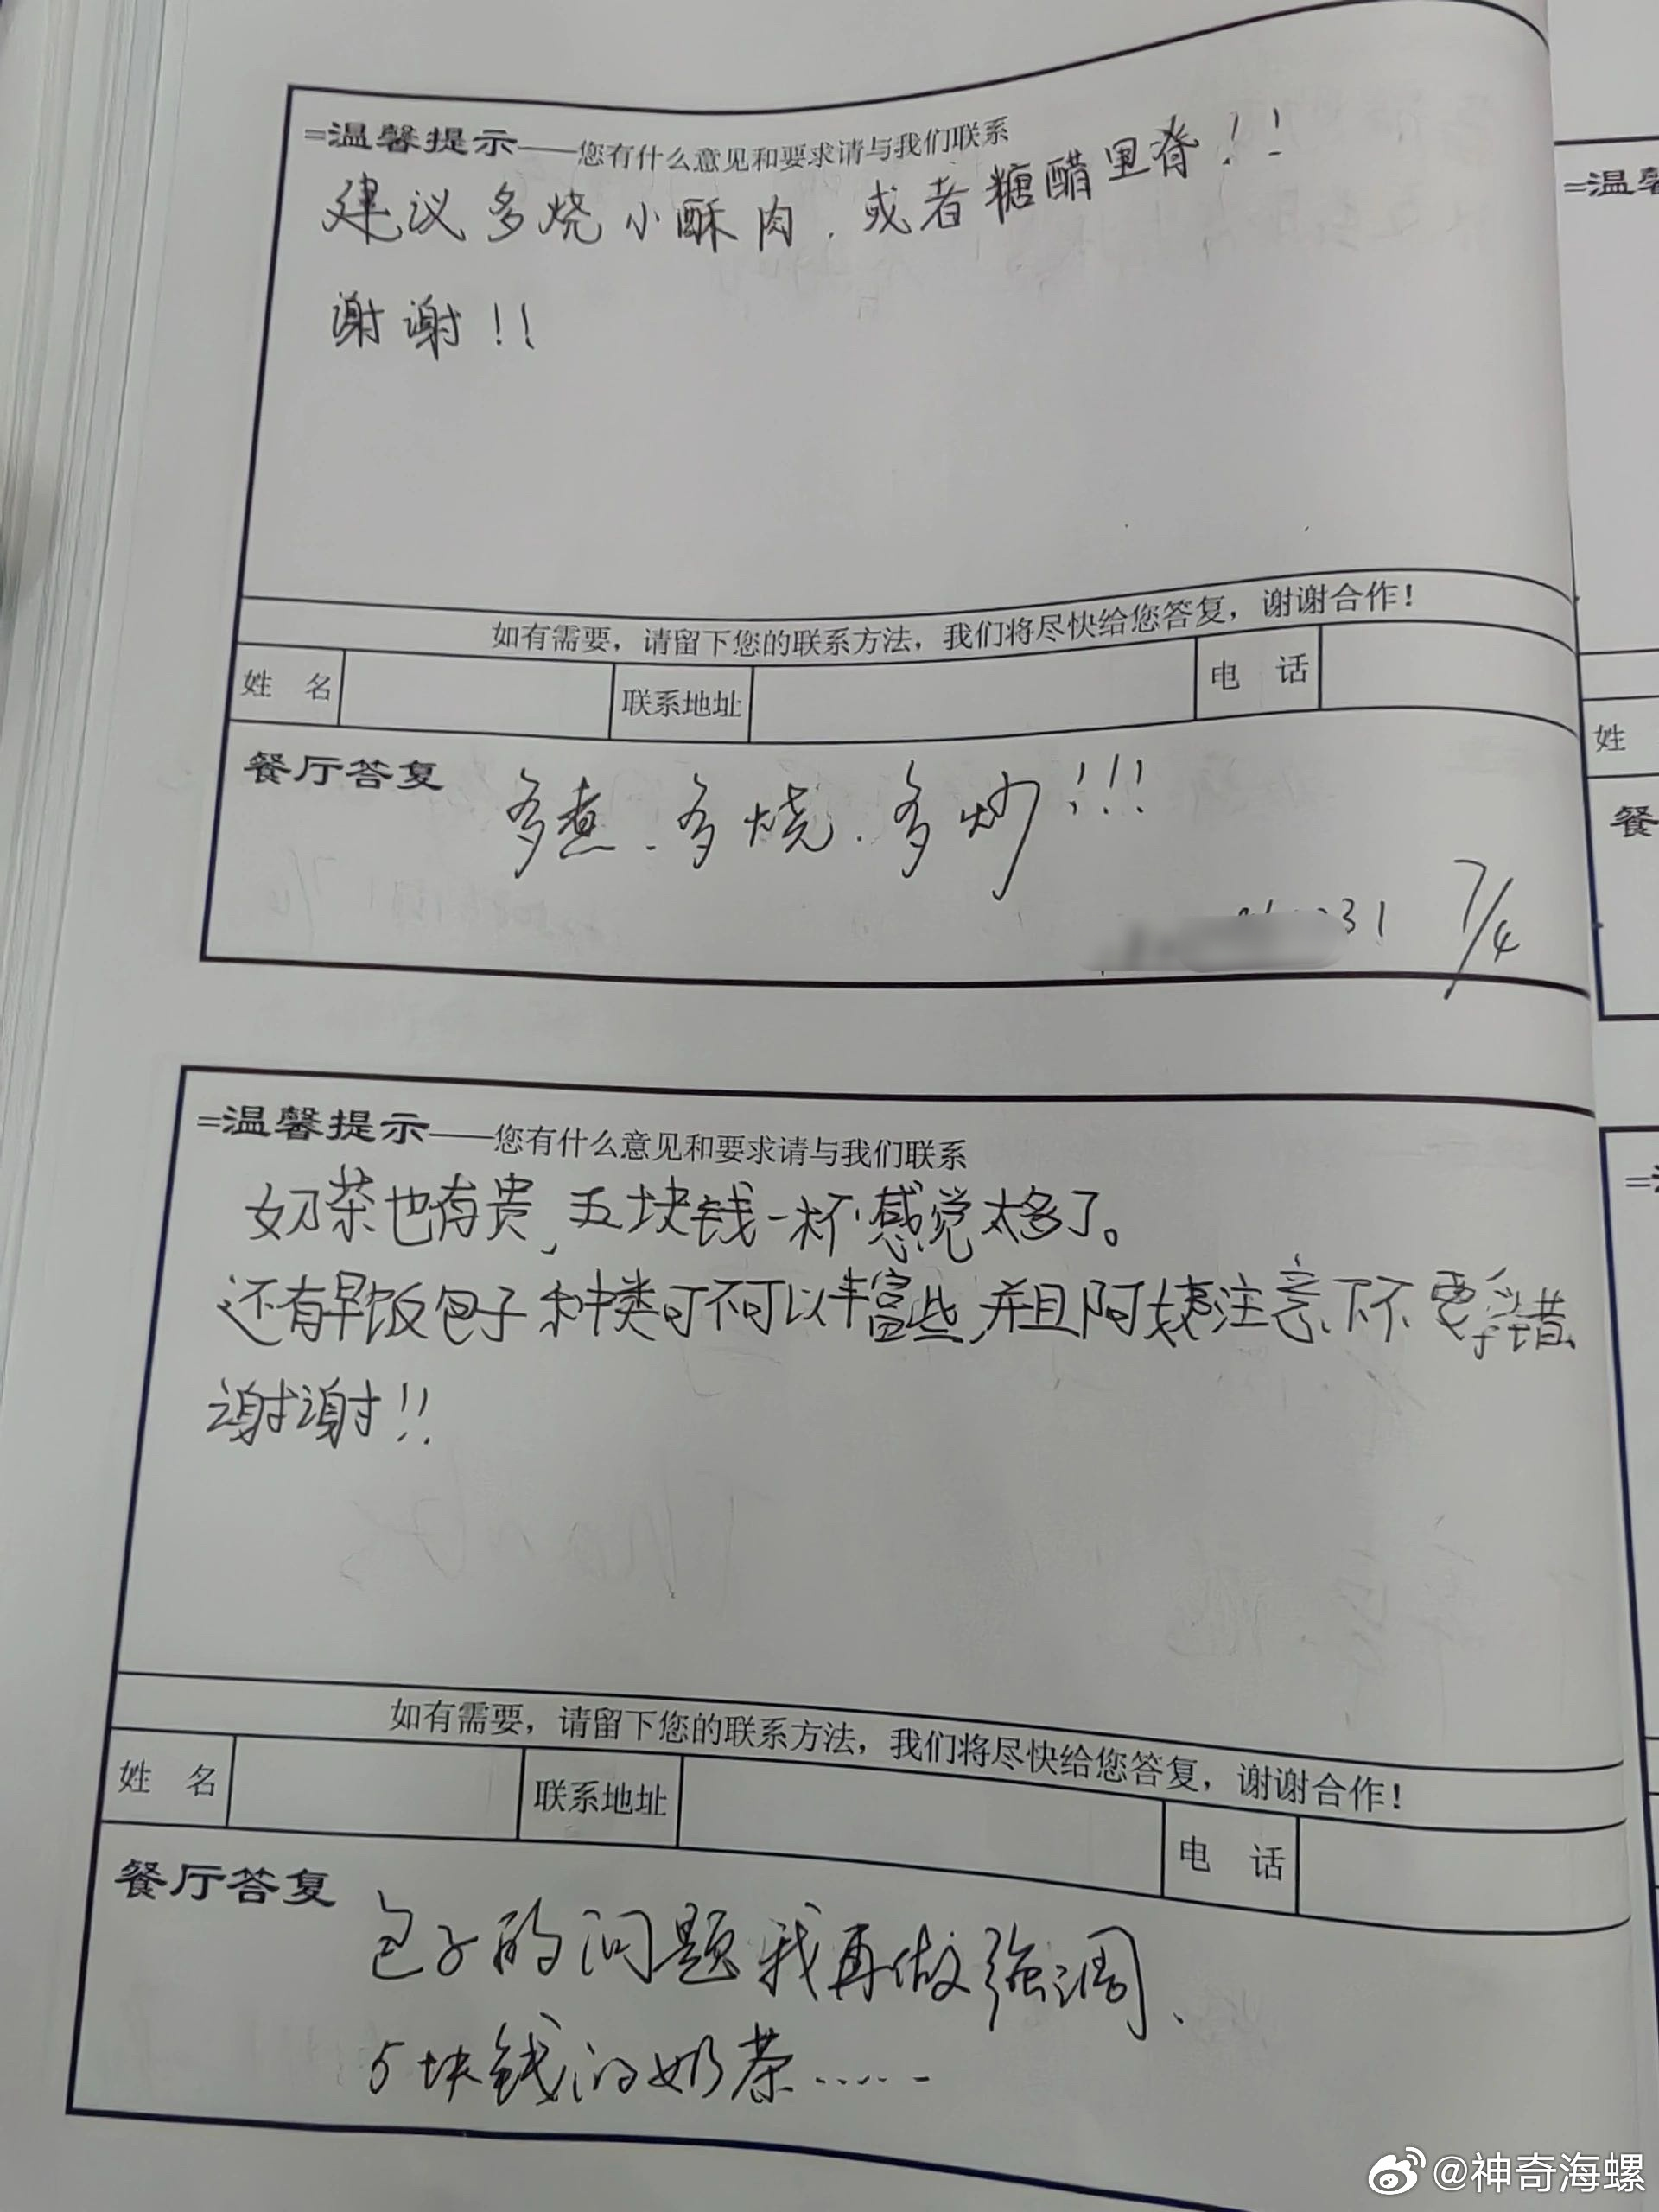 =温馨提示——您有什么意见和要求请与我们联系
建议多烧小酥肉，或者糖醋里脊！！
谢谢！！
如有需要，请留下您的联系方法，我们将尽快给您答复，谢谢合作！
姓 名 联系地址 电 话
餐厅答复
多煮、多烧、多炒！！！
31 7/4
=温馨提示——您有什么意见和要求请与我们联系
奶茶也有贵，五块钱一杯感觉太多了。
还有早饭包子种类可不可以丰富些，并且阿姨注意下不要拿错
谢谢！！
如有需要，请留下您的联系方法，我们将尽快给您答复，谢谢合作！
姓 名 联系地址 电 话
餐厅答复
包子的问题我再做强调、
5块钱的奶茶……
=温馨
姓
餐
@神奇海螺